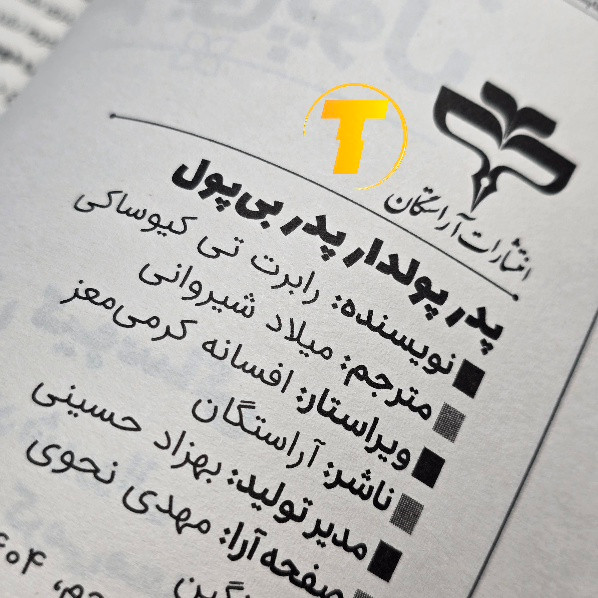 انتشارات آراستگان
پدر پولدار پدر بی‌پول
نویسنده: رابرت تی کیوساکی
مترجم: میلاد شیروانی
ویراستار: افسانه کرمی‌معز
ناشر: آراستگان
مدیر تولید: بهزاد حسینی
صفحه‌آرا: مهدی نحوی